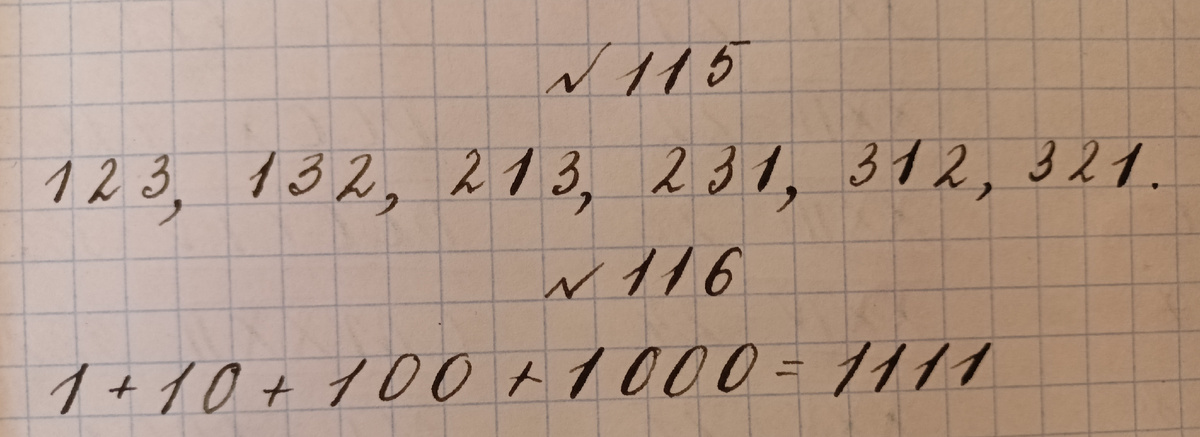 № 115
123, 132, 213, 231, 312, 321.
№ 116
1 + 10 + 100 + 1000 = 1111